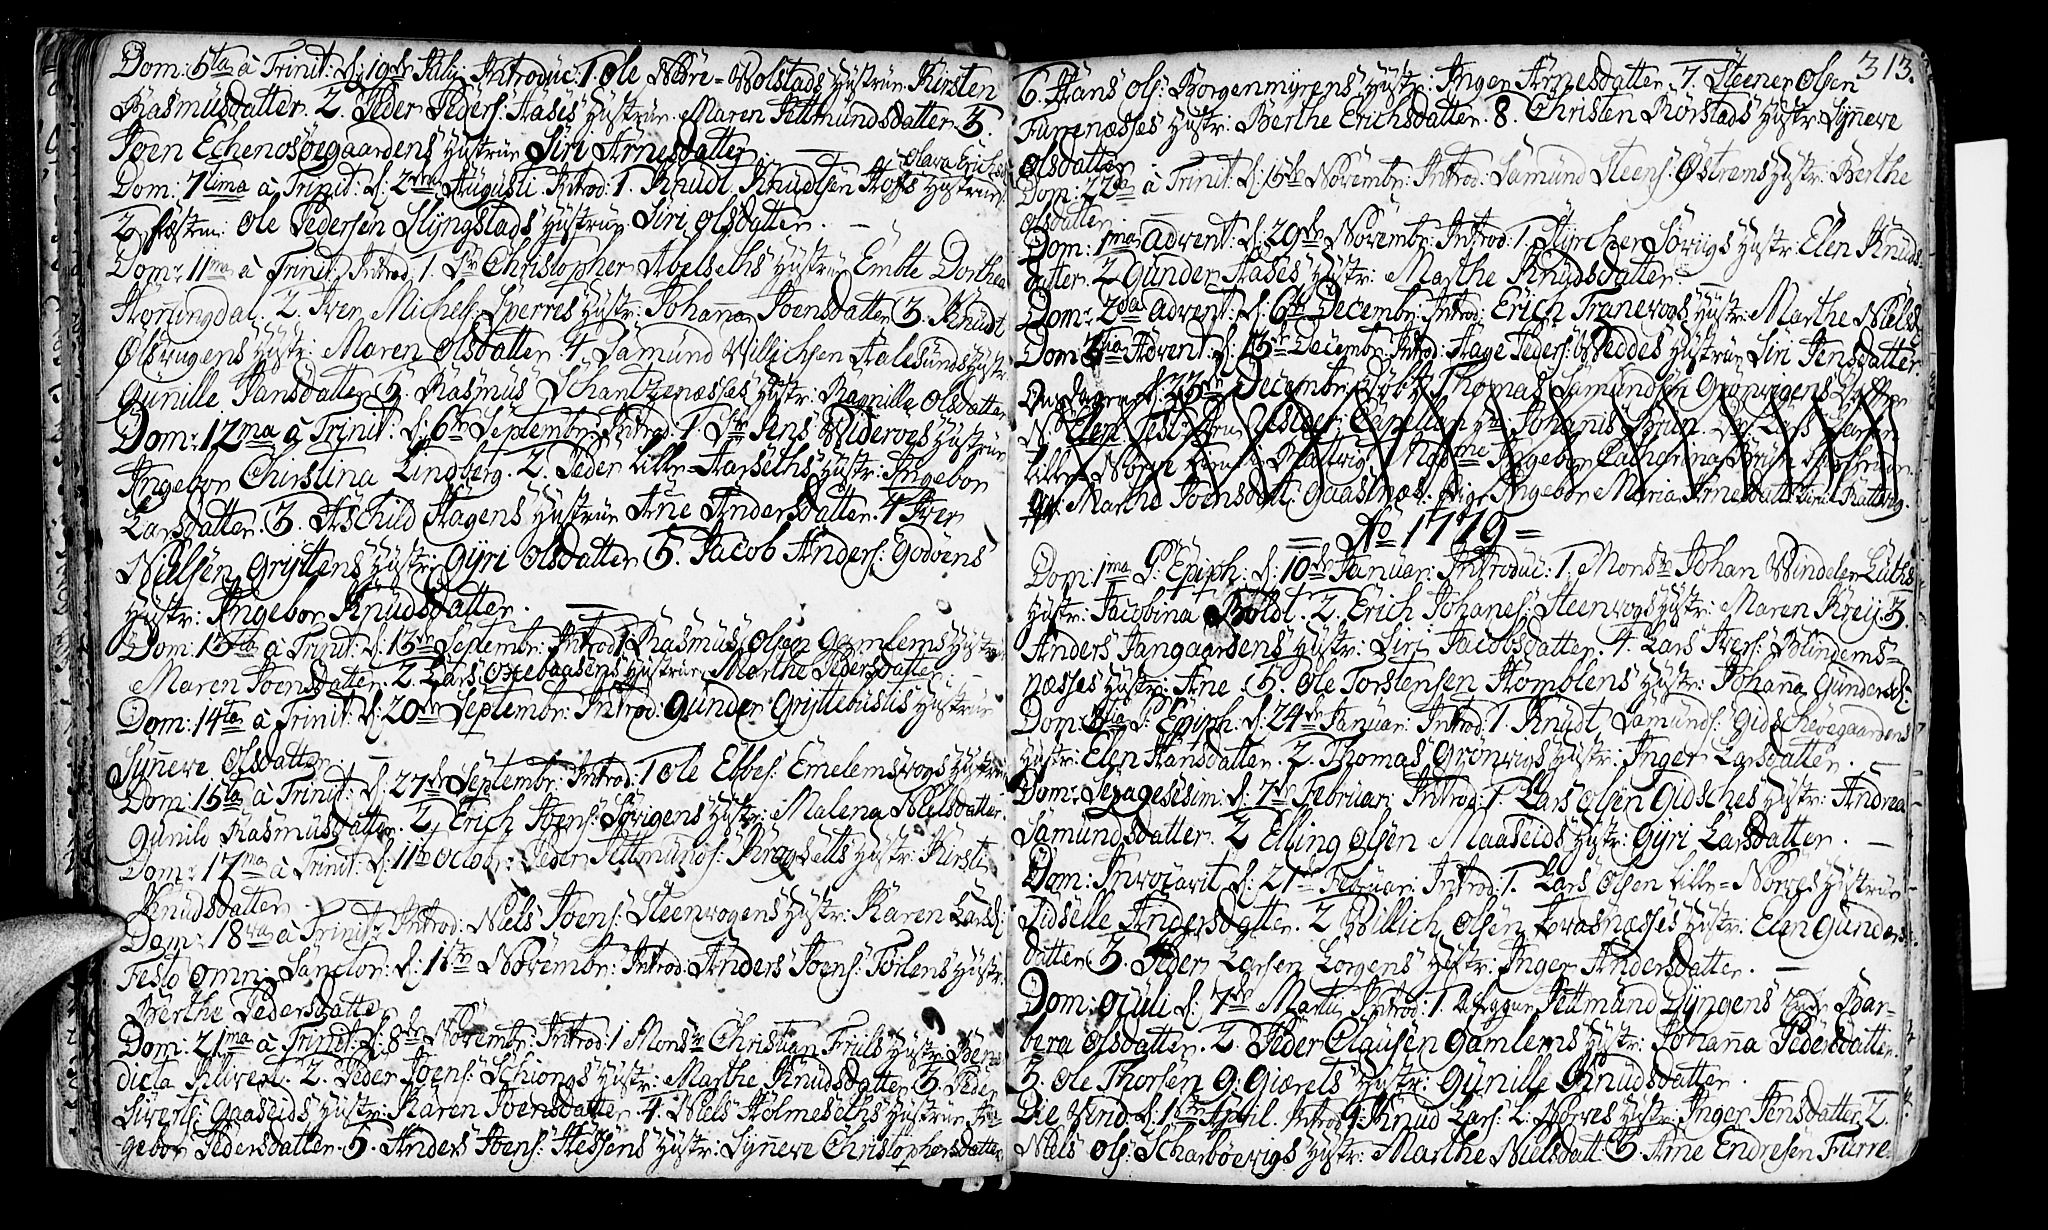 Dom: 5ta à Trinit: d: 19de Julij Introduc: 1. Ole Nedre=Wolstads Hustrue Kirsten
Rasmusdatter. 2. Peder Peders: Aases Hustrue Maren Pettmundsdatter. 3.
Joen Echenosøegaardens Hustrue Siri Arnesdatter. —
Olava Erichsd:
Dom: 7tima à Trinit: d: 2den Augusti Introd: 1. Knudt Knudtsen Hofs Hustrue
2. Ole Pedersen Slyngstads Hustrue Siri Olsdatter. —
Dom: 11ma à Trinit: Introd: 1. Sr Christopher Abelseths Hustrue Emble Dorthea
Horningdal. 2. Iver Michels: Sperres Hustr: Johanna Joensdatter 3. Knudt
Olsvigens Hustr: Maren Olsdatter 4. Samund Willichsen Aalesunds Hustr:
Gunille Hansdatter 5. Rasmus Schantzenæsses Hustr: Ragnille Olsdatter
Dom: 12ma à Trinit: d: 6te Septembr: Introd: 1. Sr Jens Widervos Hustrue
Ingebor Christina Lindberg. 2. Peder Lille=Aarseths Hustr: Ingebor
Larsdatter. 3. Aschild Hagens Hustrue Ane Andersdatter. 4 Iver
Nielsen Gryttens Hustr: Gyri Olsdatter 5. Jacob Anders: Godøens
Hustr: Ingebor Knudsdatter. —
Dom: 13tia à Trinit: d: 13de Septembr: Introd 1 Rasmus Olsen Gamlems Hustrue
Maren Joensdatter. 2. Lars Hustrue Marthe Pedersdatter. —
Dom: 14ta à Trinit: d: 20de Septembr: Introd: Gunder Gryttebustis Hustrue
Synneve Olsdatter. —
Dom: 15ta à Trinit: d: 27de Septembr: Introd: 1 Ole Ebbes: Emelemsvogs Hustrue
Gunild Rasmusdatter. 2, Erich Joens: Sørigens Hustr: Malena Nielsdatter.
Dom: 17ma à Trinit: d: 11te Octobr: Peder Pettmunds: Krogsetts Hustr: Kirsti
Knudsdatter. —
Dom: 18va à Trinit: Introd: Niels Joens: Steenvogens Hustr: Karen Larsd:
Festo Omn: Sanctor: d: 1ste Novembr: Introd: Anders Joens: Torlens Hustr:
Berthe Pedersdatter
Dom: 21ma à Trinit: d: 8de Novembr: Introd: 1 Monsr Christian Friils Hustr: Bene
dicta 2. Peder Joens: Schiongs Hustr: Marthe Knudsdatter 3. Peder
Siverts: Gaaseids Hustr: Karen Joensdatter. 4. Niels Holmeseths Hustrue In-
gebor Pedersdatter. 5. Anders Joens: Hessens Hustr: Synneve Christophersdatter
313.
6. Hans Ols: Borgenmyrens Hustr: Inger Arnesdatter. 7. Steener Olsen
Furrenæsses Hustr: Berthe Erichsdatter. 8. Christen Rørstads Hustr: Synneve
Olsdatter
Dom: 22da à Trinit: d: 15de Novembr: Introd: Samund Steens: Østrems Hustr: Berthe
Olsdatter. —
Dom: 1ma Advent: d: 29de Novembr: Introd: 1. Styrcher Sørvigs Hustr: Elen Knuds-
datter. 2 Gunder Aases Hustr: Marthe Knudsdatter. —
Dom: 2da Advent: d: 6te Decembr: Introd: Erich Tranevogs Hustr: Marthe Nielsd:
Dom 3tia Advent: d: 13de Decembr: Introd: Aage Peders: Hustrue Siri Jensdatter.
d: 23de Decembr: Døbt Thomas Samundsen Grønvigens
N: Elen Test: Capellan Hr Johannis Brun. Lars Larsen
Lille Norve Madme Ingebor Catharina Brun
Marthe Joensdatt: Gaasnæs. Pig: Ingebor Maria Arnesdatt:
= Ao 1779 =
Dom: 1ma P: Epiph: d: 10de Januar: Introduc: 1. Monsr Johan Windeler Lüths
Hustr: Jacobina Boldt. 2. Erich Johanes: Steenvogs Hustr: Maren Kreij. 3.
Anders Vangaardens Hustr: Siri Jacobsdatter. 4. Lars Ivers: Blindems=
næsses Hustr: Ane. 5. Ole Torstensen Homblens Hustr: Johanna Gundersd:
Dom: 3tia P: Epiph: d: 24de Januar: Introd: 1. Knudt Samunds: Gidschevegaardens
Hustr: Elen Hansdatter. 2. Thomas Grønvigs Hustr: Inger Larsdatter. —
Dom: Sexagesisim: d: 7de Februar: Introd: 1. Lars Olsen Gidsches Hustr: Andrea
Samundsdatter. 2 Elling Olsen Maaseids Hustr: Gyri Larsdatter. —
Dom: Invocavit d: 21de Februar: Introd: 1. Lars Olsen Lille=Norves Hustrue
Sidselle Andersdatter. 2 Willich Olsen Hustr: Elen Gunders-
datter 3. Peder Larsen Lorgens Hustr: Inger Andersdatter. —
Dom: Oculi d: 7de Martij Introd: 1. Pettmund Dyngens Enke Bar-
bera Olsdatter. 2. Peder Clausen Gamlems Hustr: Johanna Pedersdatter.
3. Ole Thorsen G: Giærets Hustr: Gunille Knudsdatter.
Die Virid: d: 1ste April. Introd 1. Knud Lars: L: Norves Hustr: Inger Jensdatter. 2.
Niels Ols: Scharbøevigs Hustr: Marthe Nielsdatt. 3. Arne Endresen Furre-